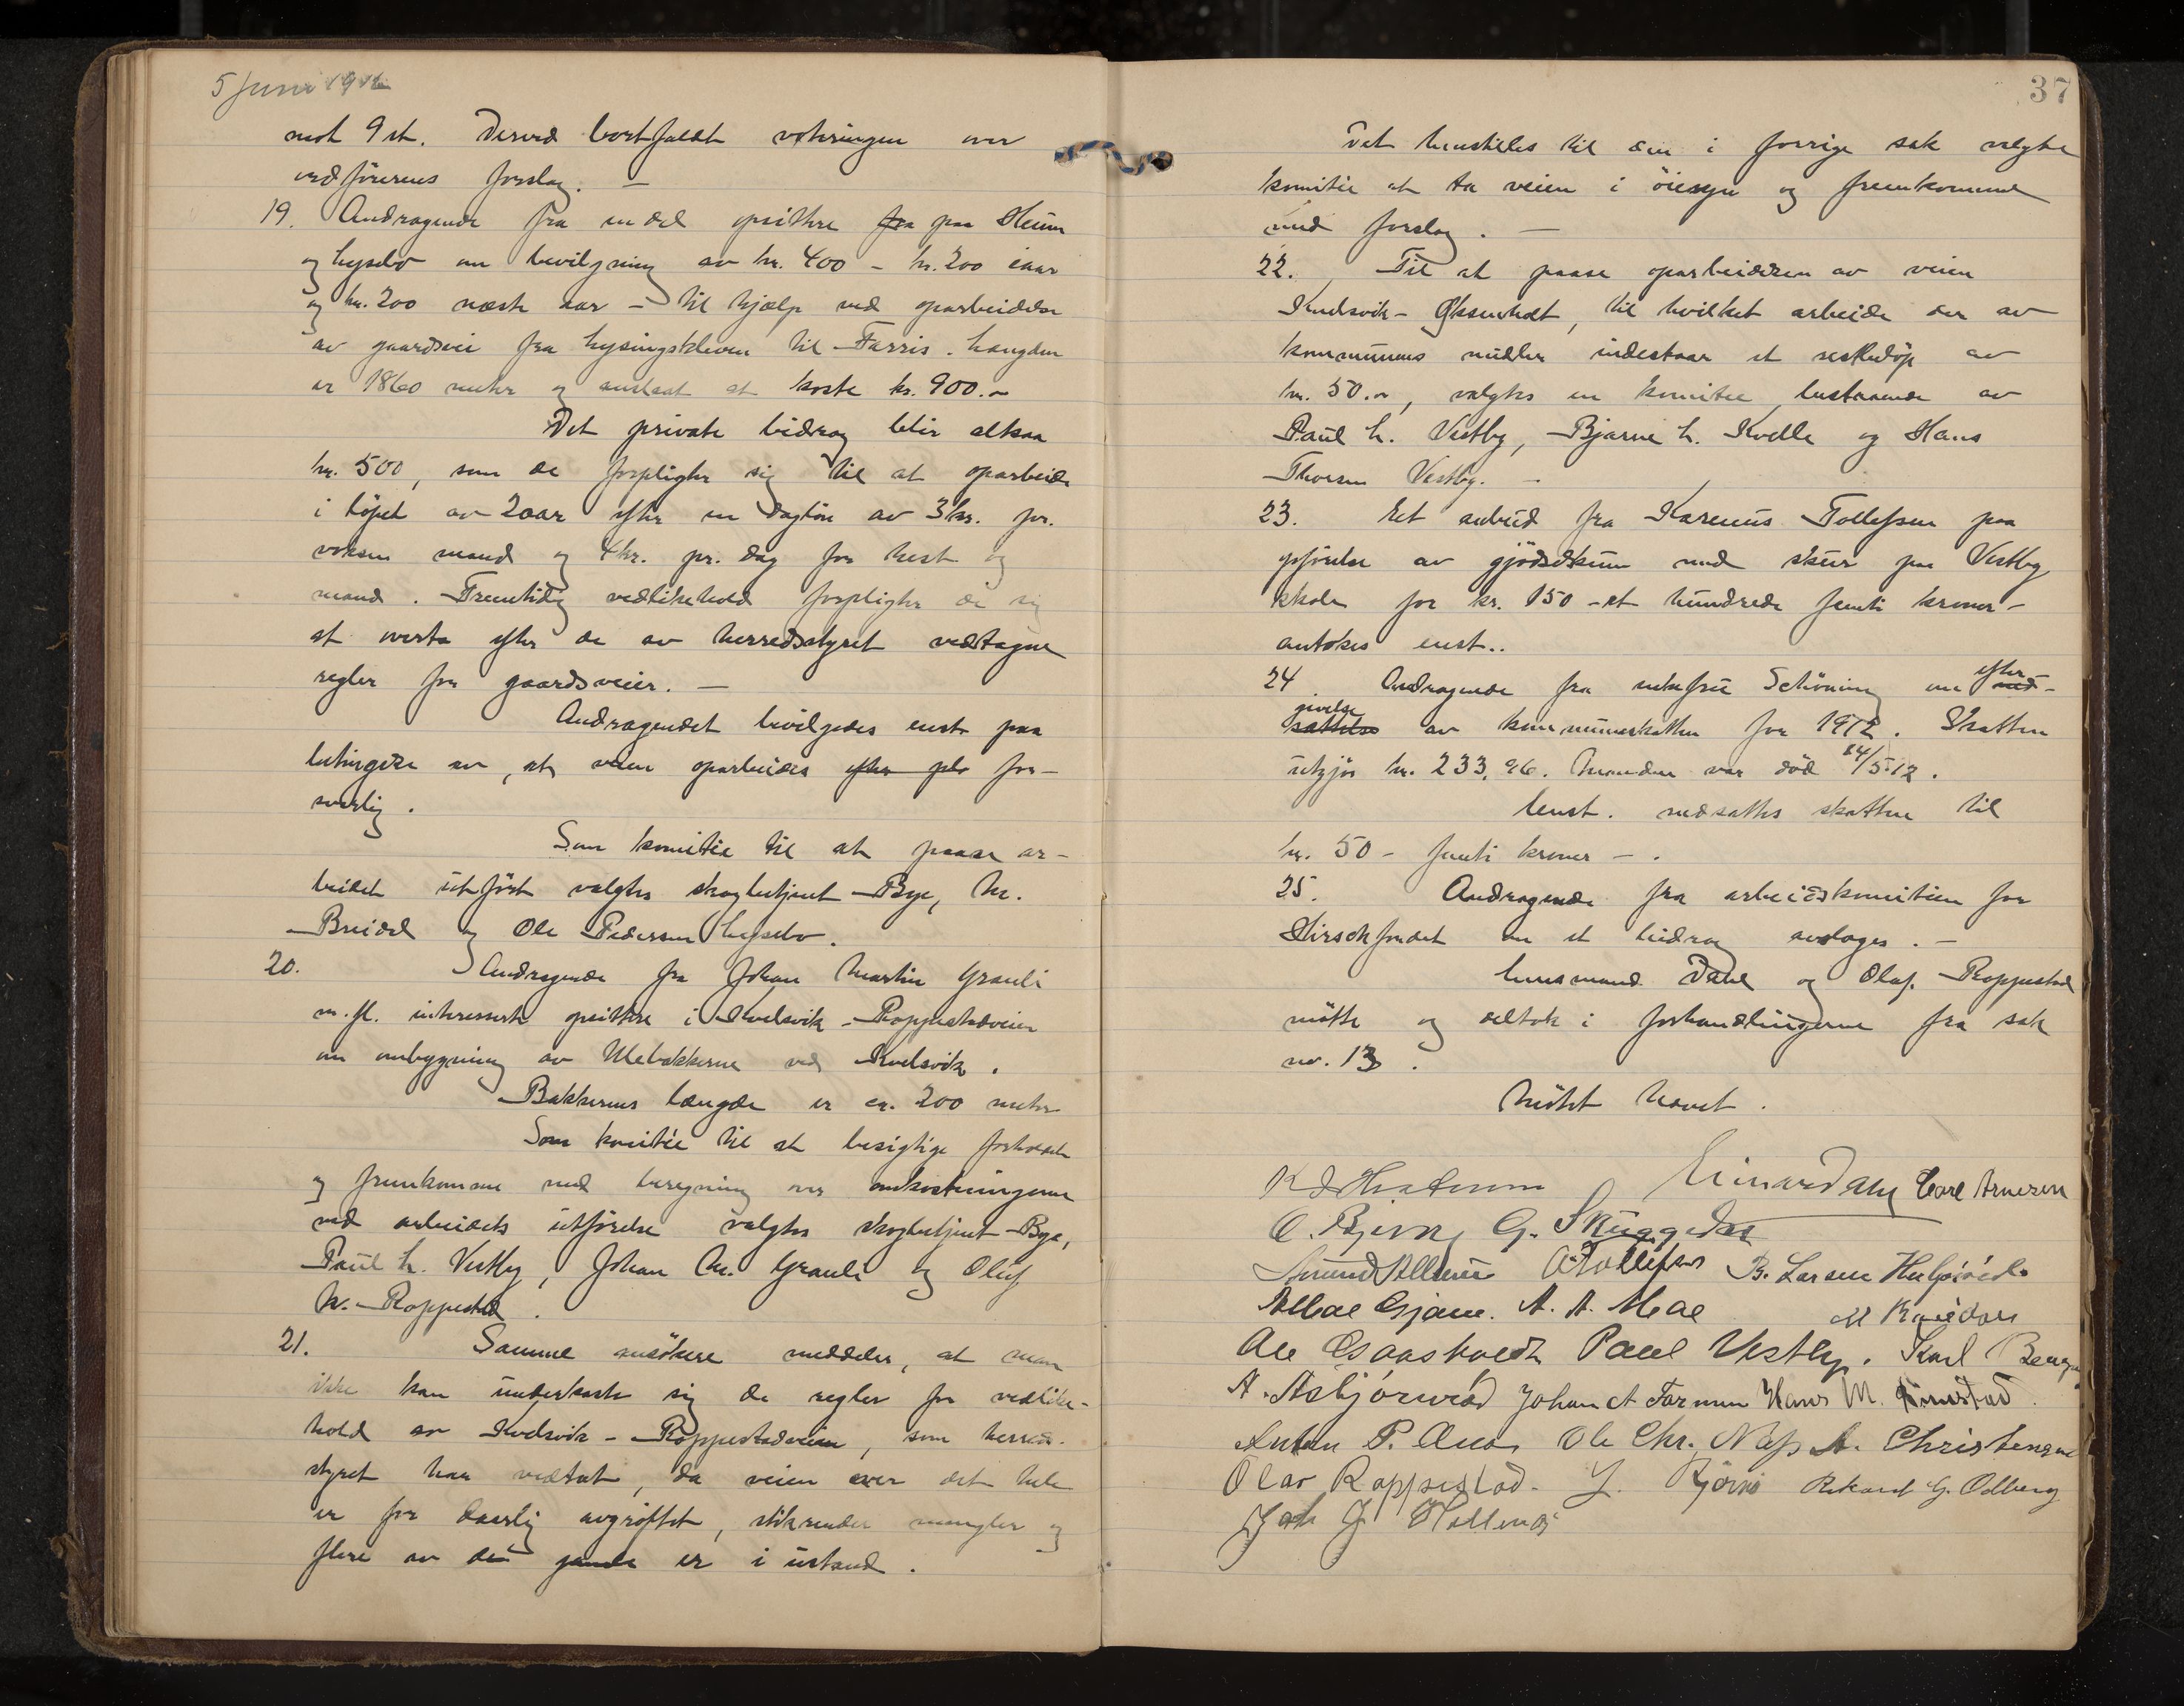 5 Juni 1912
mot 9 st. Derved bortfaldt voteringen over
ordförerens forslag. –
19. Andragende fra en del opsittere fra paa Heum
og Lysebo om bevilgning av kr. 400 – kr. 200 iaar
og kr. 200 næste aar – til hjælp ved oparbeidelse
av gaardsvei fra Lysingskleven til Farris. Længden
er 1860 meter og anslaat at koste kr. 900.-
Det private bidrag blir altsaa
kr. 500, som de forpligter sig til at oparbeide
i löpet av 2 aar efter en daglön av 3 kr. pr.
voksen mand og 4 kr. pr. dag for hest og
mand. Fremtidig vedlikehold forpligter de sig
at overta efter de av herredsstyret vedtagne
regler for gaardsveier. –
Andragendet bevilgedes enst. paa
betingelse av, at veien oparbeides efter pla for-
svarlig.
Som komitée til at paase ar-
beidet utfört valgtes skogbetjent Bye, M.
Breidal og Ole Pedersen Lysebo.
20. Andragende fra Johan Martin Grauli
m.fl. interesserte opsittere i Kvelsvik – Roppestadveien
om ombygning av Ulebakkerne ved Kvelsvik.
Bakkernes længde er ca. 200 meter
Som komitée til at besigtige forholdet
og fremkomme med beregning over omkostningerne
ved arbeidets utförelse valgtes skogbetjent Bye,
Paul L. Vestby, Johan M. Grauli og Oluf
M. Roppestad.
21. Samme ansökere meddeler, at man
ikke kan underkaste sig de regler for vedlike-
hold av Kvelsvik – Roppestadveien, som herreds-
styret har vedtat, da veien over det hele
er for daarlig avgröftet, stikrender mangler og
flere av de gamle er i ustand.
37
Det henstilles til den i forrige sak valgte
komitée at ta veien i öiesyn og fremkomme
med forslag. –
22. Til at paase oparbeidelsen av veien
Kvelsvik – Oksenholt, til hvilket arbeide der av
kommunens midler indestaar et restbelöp av
kr. 50.-, valgtes en komitee bestaaende av
Paul L. Vestby, Bjarne L. Kvelle og Hans
Thorsen Vestby. –
23. Et anbud fra Karenus Tollefsen paa
opförelse av gjödselkum med skur paa Vestby
skole for kr. 150 – et hundrede femti kroner –
antokes enst..
24. Andragende fra enkefru Schöning om efter ned-
givelse sættelse av kommuneskatten for 1912. Skatten
utgjör kr. 233,96. Manden var död 24/5 12.
Enst. nedsattes skatten til
kr. 50 – femti kroner – .
25. Andragende fra arbeidskomitéen for
Hirschfondet om et bidrag avslages. –
Lensmand Dahl og Olaf Roppestad
mötte og deltok i forhandlingerne fra sak
no. 13.
Mötet hævet.
Einar Dahl Carl Arnesen
O. Bjerk G. Skuggedal
Amund Allum A. Tollefsen B. Larsen
A. A. Mæle M Breidal
Ole Gaasholt Paul Vestby. Karl
A. Asbjörnröd Johan A Farmen Hans M.
Anton P. Aas Ole Chr. Næss A. Christensen
Olav Roppestad. L. Rikard G. Odberg
Joh J